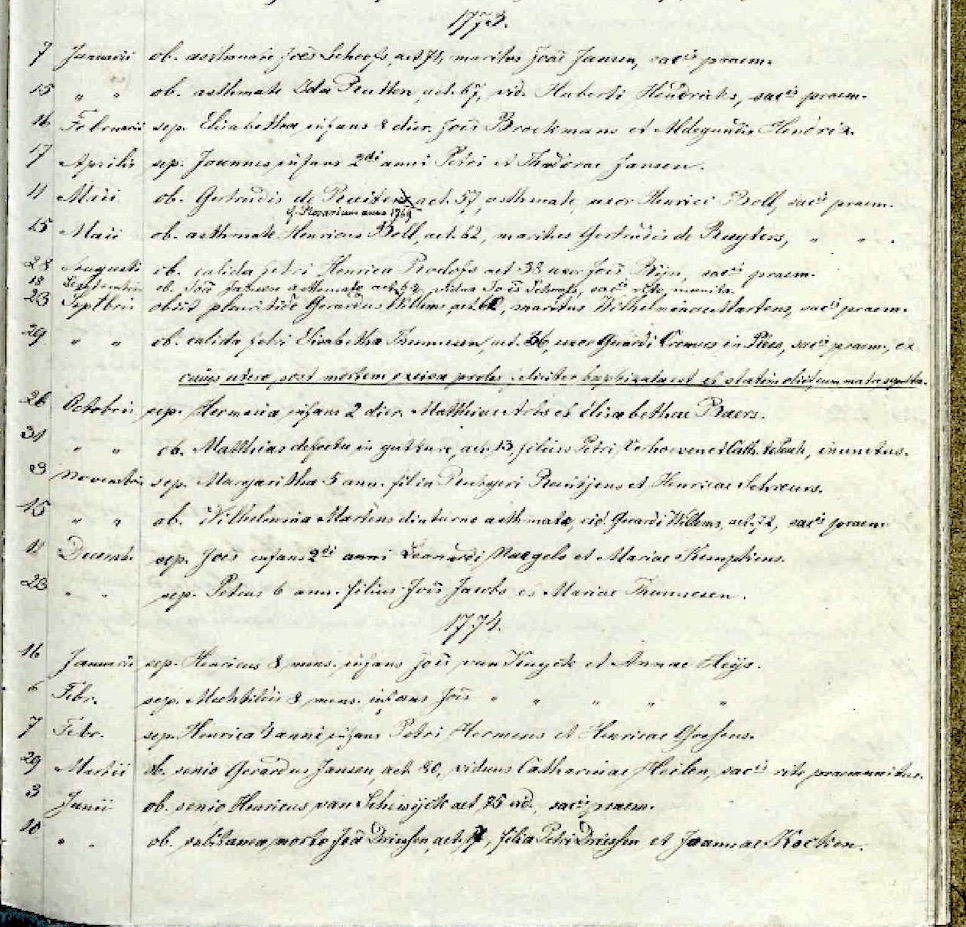 1773.
7 Januarii ob. asthmate Joes Schoofs, aet. 71, maritus Joae Jansen, sacis praem.
15 „ „ ob. asthmate Ida Rutten, aet. 67, vid. Huberti Hendricks, sacis praem.
16 Februarii sep. Elisabetha infans 8 dier. Jois Brockmans et Aldegundis Hendrix.
17 Aprilis sep. Joannes infans 2di anni Petri et Theodorae Jansen.
11 Maii ob. Gertrudis de Ruiters aet. 57, asthmate, uxor Henrici Boll, sacis praem.
Rosarium anno 1769
15 Maii ob. asthmate Henricus Boll, aet. 62, maritus Gertrudis de Ruyters, „ „ .
28 Augusti ob. calida febri Henrica Roelofs aet 38 uxor Jois sacis praem.
18 Septembris ob. Joa Jansen asthmate aet. vidua Jois Schoofs, sacis rite munita.
23 Septbris obiit pleuritide Gerardus Willems aet. maritus Wilhelminae Martens, sacis praem.
29 „ „ ob. calida febri Elisabetha Theunissen, aet. 36, uxor Gerardi Cremers in Rees, sacis praem., ex
cuius utero post mortem exciso proles feliciter baptizata est et statim obiit cum matre sepulta.
26 Octobris sep. Hermana infans 2 dier. Matthiae Arts et Elisabethae Raers.
31 „ „ ob. Matthias defectu in gutture, aet. 13 filius Petri Verhoeven et Cath. inunctus.
3 Novembris sep. Margaritha 5 ann. filia Rutgeri Rentjens et Henricae Schreurs.
15 „ „ ob. Wilhelmina Martens diuturno asthmate, vid. Gerardi Willems, aet. 72, sacis praem.
12 Decemb. sep. Joes infans 2di anni Leonardi Naegels et Mariae Kempkens.
23 „ „ sep. Petrus 6 ann. filius Jois Jacobs et Mariae Theunissen.
1774.
16 Januarii sep. Henricus 8 mens. infans Jois van Kuyck et Annae Heijs.
6 Febr. sep. Mechtildis 8 mens. infans Jois „ „ „ „ „
7 Febr. sep. Henrica 3 anni infans Petri Hermens et Henricae Goossens.
29 Martii ob. senio Gerardus Jansen aet. 80, viduus Catharinae Heilen, sacis rite praemunitus.
3 Junii ob. senio Henricus van Schewijck aet. 75 vid. sacis praem.
10 „ „ ob. subitanea morte Joa Driessen, aet. filia Petri Driessen et Joannae Kocken.